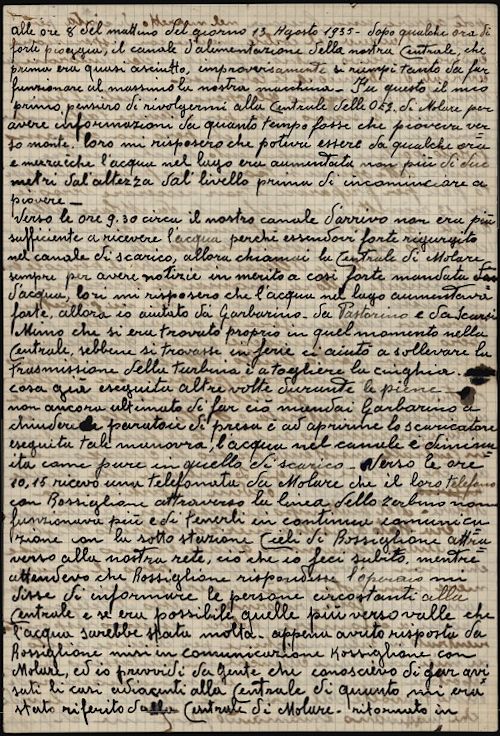 alle ore 8 del mattino del giorno 13 Agosto 1935 - dopo qualche ora di
forte pioggia, il canale d'alimentazione della nostra Centrale, che
prima era quasi asciutto, improvvisamente si riempì tanto da far
funzionare al massimo la nostra macchina - Fu questo il mio
primo pensiero di rivolgermi alla Centrale delle OEG. di Molare per
avere informazioni da quanto tempo fosse che pioveva ver-
so monte. loro mi risposero che poteva essere da qualche ora
e mezza che l'acqua nel lago era aumentata non più di due
metri dal'altezza dal' livello prima di incominciare a
piovere -
Verso le ore 9,30 circa il nostro canale d'arrivo non era più
sufficiente a ricevere l'acqua perchè essendovi forte rigurgito
nel canale di scarico, allora chiamai la Centrale di Molare
sempre per avere notizie in merito a così forte mandata
d'acqua, loro mi risposero che l'acqua nel lago aumentava
forte, allora io aiutato da Garbarino. da Pastorino e da Scarsi
Mimo che si era trovato proprio in quel momento nella
Centrale, sebbene si trovasse in ferie ci aiutò a sollevare la
trasmissione della turbina e a togliere la cinghia.
cosa già eseguita altre volte durante le piene -
non ancora ultimato di far ciò mandai Garbarino a
chiudere le paratoie di presa e ad aprirne lo scaricatore
eseguita tale manovra, l'acqua nel canale è diminu-
ita come pure in quello di scarico - Verso le ore
10,15 ricevo una telefonata da Molare che il loro telefono
con Rossiglione attraverso la linea dello Zerbino non
funzionava più e di tenerli in continua comunica-
zione con la sotto stazione Cieli di Rossiglione attra-
verso alla nostra rete, ciò che io feci subito, mentre
attendevo che Rossiglione rispondesse l'operaio mi
disse di informare le persone circostanti alla
Centrale e se era possibile quelle più verso valle che
l'acqua sarebbe stata molta. appena avuto risposta da
Rossiglione misi in comunicazione Rossiglione con
Molare, ed io provvidi da gente che conoscievo di far avi-
sati li casi adiacenti alla Centrale di quanto mi era
stato riferito dalla Centrale di Molare - ritornato in